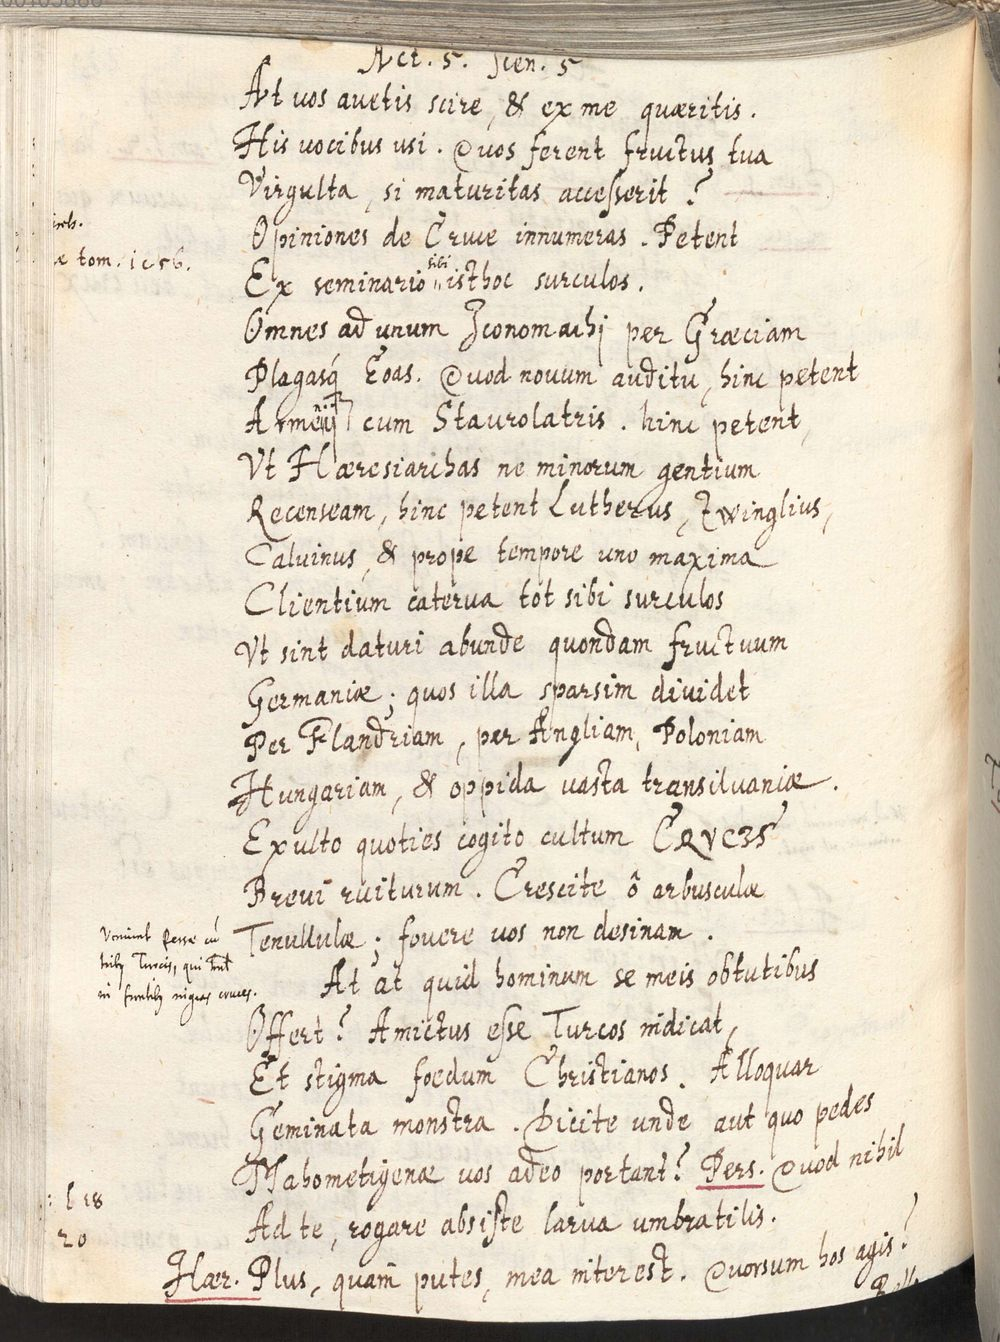 Act. 5. Scen. 5
At vos avetis scire, & ex me quæritis.
His vocibus usi. Quos ferent fructus tua
Virgulta, si maturitas accesserit?
Opiniones de Cruce innumeras. Petent
tom. 1c 56.
Ex seminario sibi isthoc surculos.
Omnes ad unum Iconomachj per Græciam
Plagasq́ Eoas. Quod novum auditu, hinc petent
Armenij cum Staurolatris. hinc petent,
Vt Hæresiarchas ne minorum gentium
Recenseam, hinc petent Lutherus, Zwinglius,
Calvinus, & prope tempore uno maxima
Clientium caterva tot sibi surculos
Vt sint daturi abunde quondam fructuum
Germaniæ; quos illa sparsim dividet
Per Flandriam, per Angliam, Poloniam
Hungariam, & oppida vasta transilvaniæ.
Exulto quoties cogito cultum CRVCIS
Brevi ruiturum. Crescite ô arbusculæ
Tenullulæ; fovere vos non desinam.
Veniunt Persæ cũ
tribꝫ Turcis, qui
in frontibꝫ nigras cruces.
At at quid hominum se meis obtutibus
Offert? Amictus esse Turcos indicat,
Et stigma foedum Christianos. Alloquar
Geminata monstra. Dicite unde aut quo pedes
Mahometigenæ vos adeo portant? Pers. Quod nihil
: l 18
20
Ad te, rogare absiste larva umbratilis.
Hær. Plus, quam putes, mea interest. Quorsum hos agis?